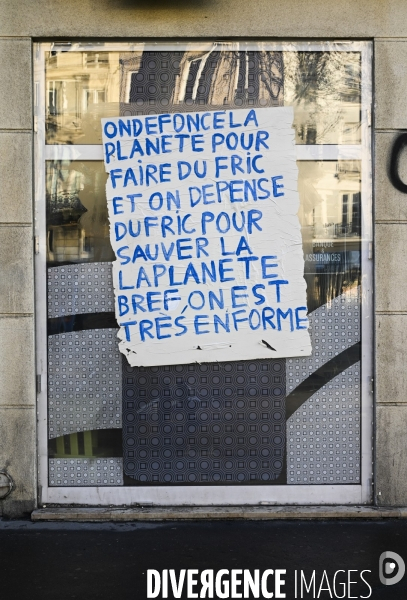 ON DEFONCE LA
PLANÈTE POUR
FAIRE DU FRIC
ET ON DEPENSE
DU FRIC POUR
SAUVER LA
LA PLANÈTE
BREF, ON EST
TRÈS EN FORME
BANQUE
ASSURANCES
DIVERGENCE IMAGES
D